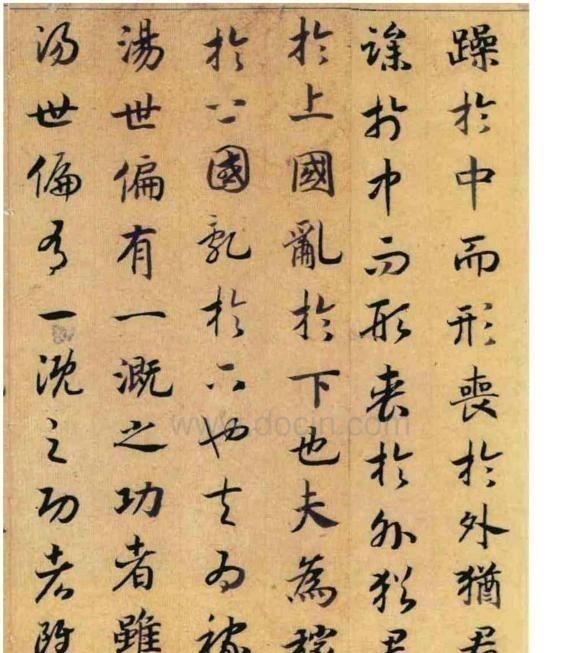 躁於中而形喪於外猶君
躁於中而形喪於外猶君
於上國亂於下也夫為稼
於上國亂於下也夫為稼
湯世偏有一溉之功者雖
湯世偏有一溉之功者雖
www.docin.com